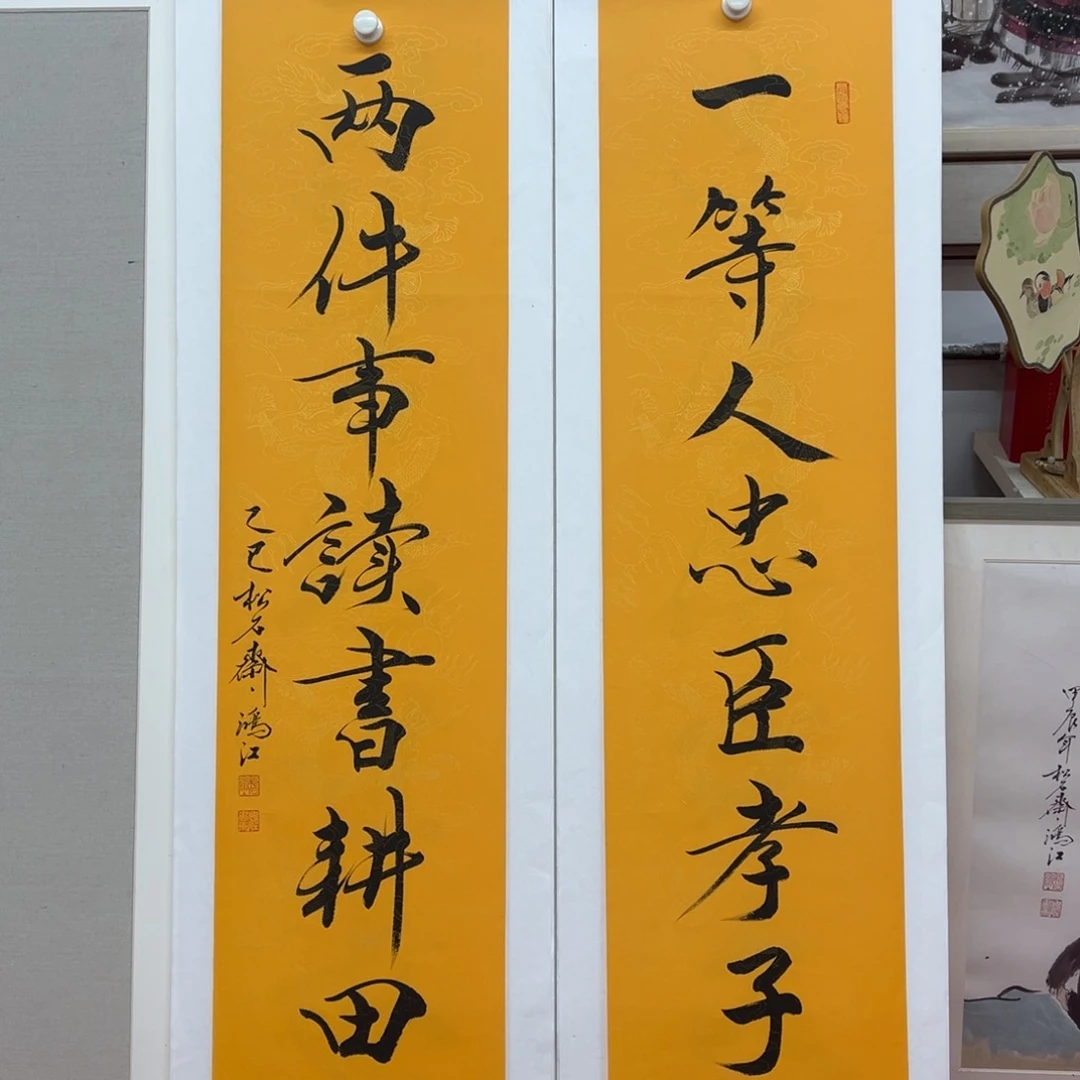 一等人忠臣孝子
两件事讀書耕田
乙巳松石齋鴻江
甲辰年松石齋鴻江